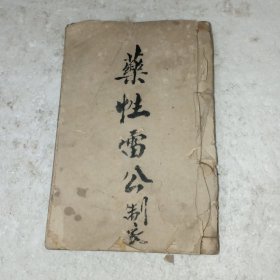 藥性雷公制